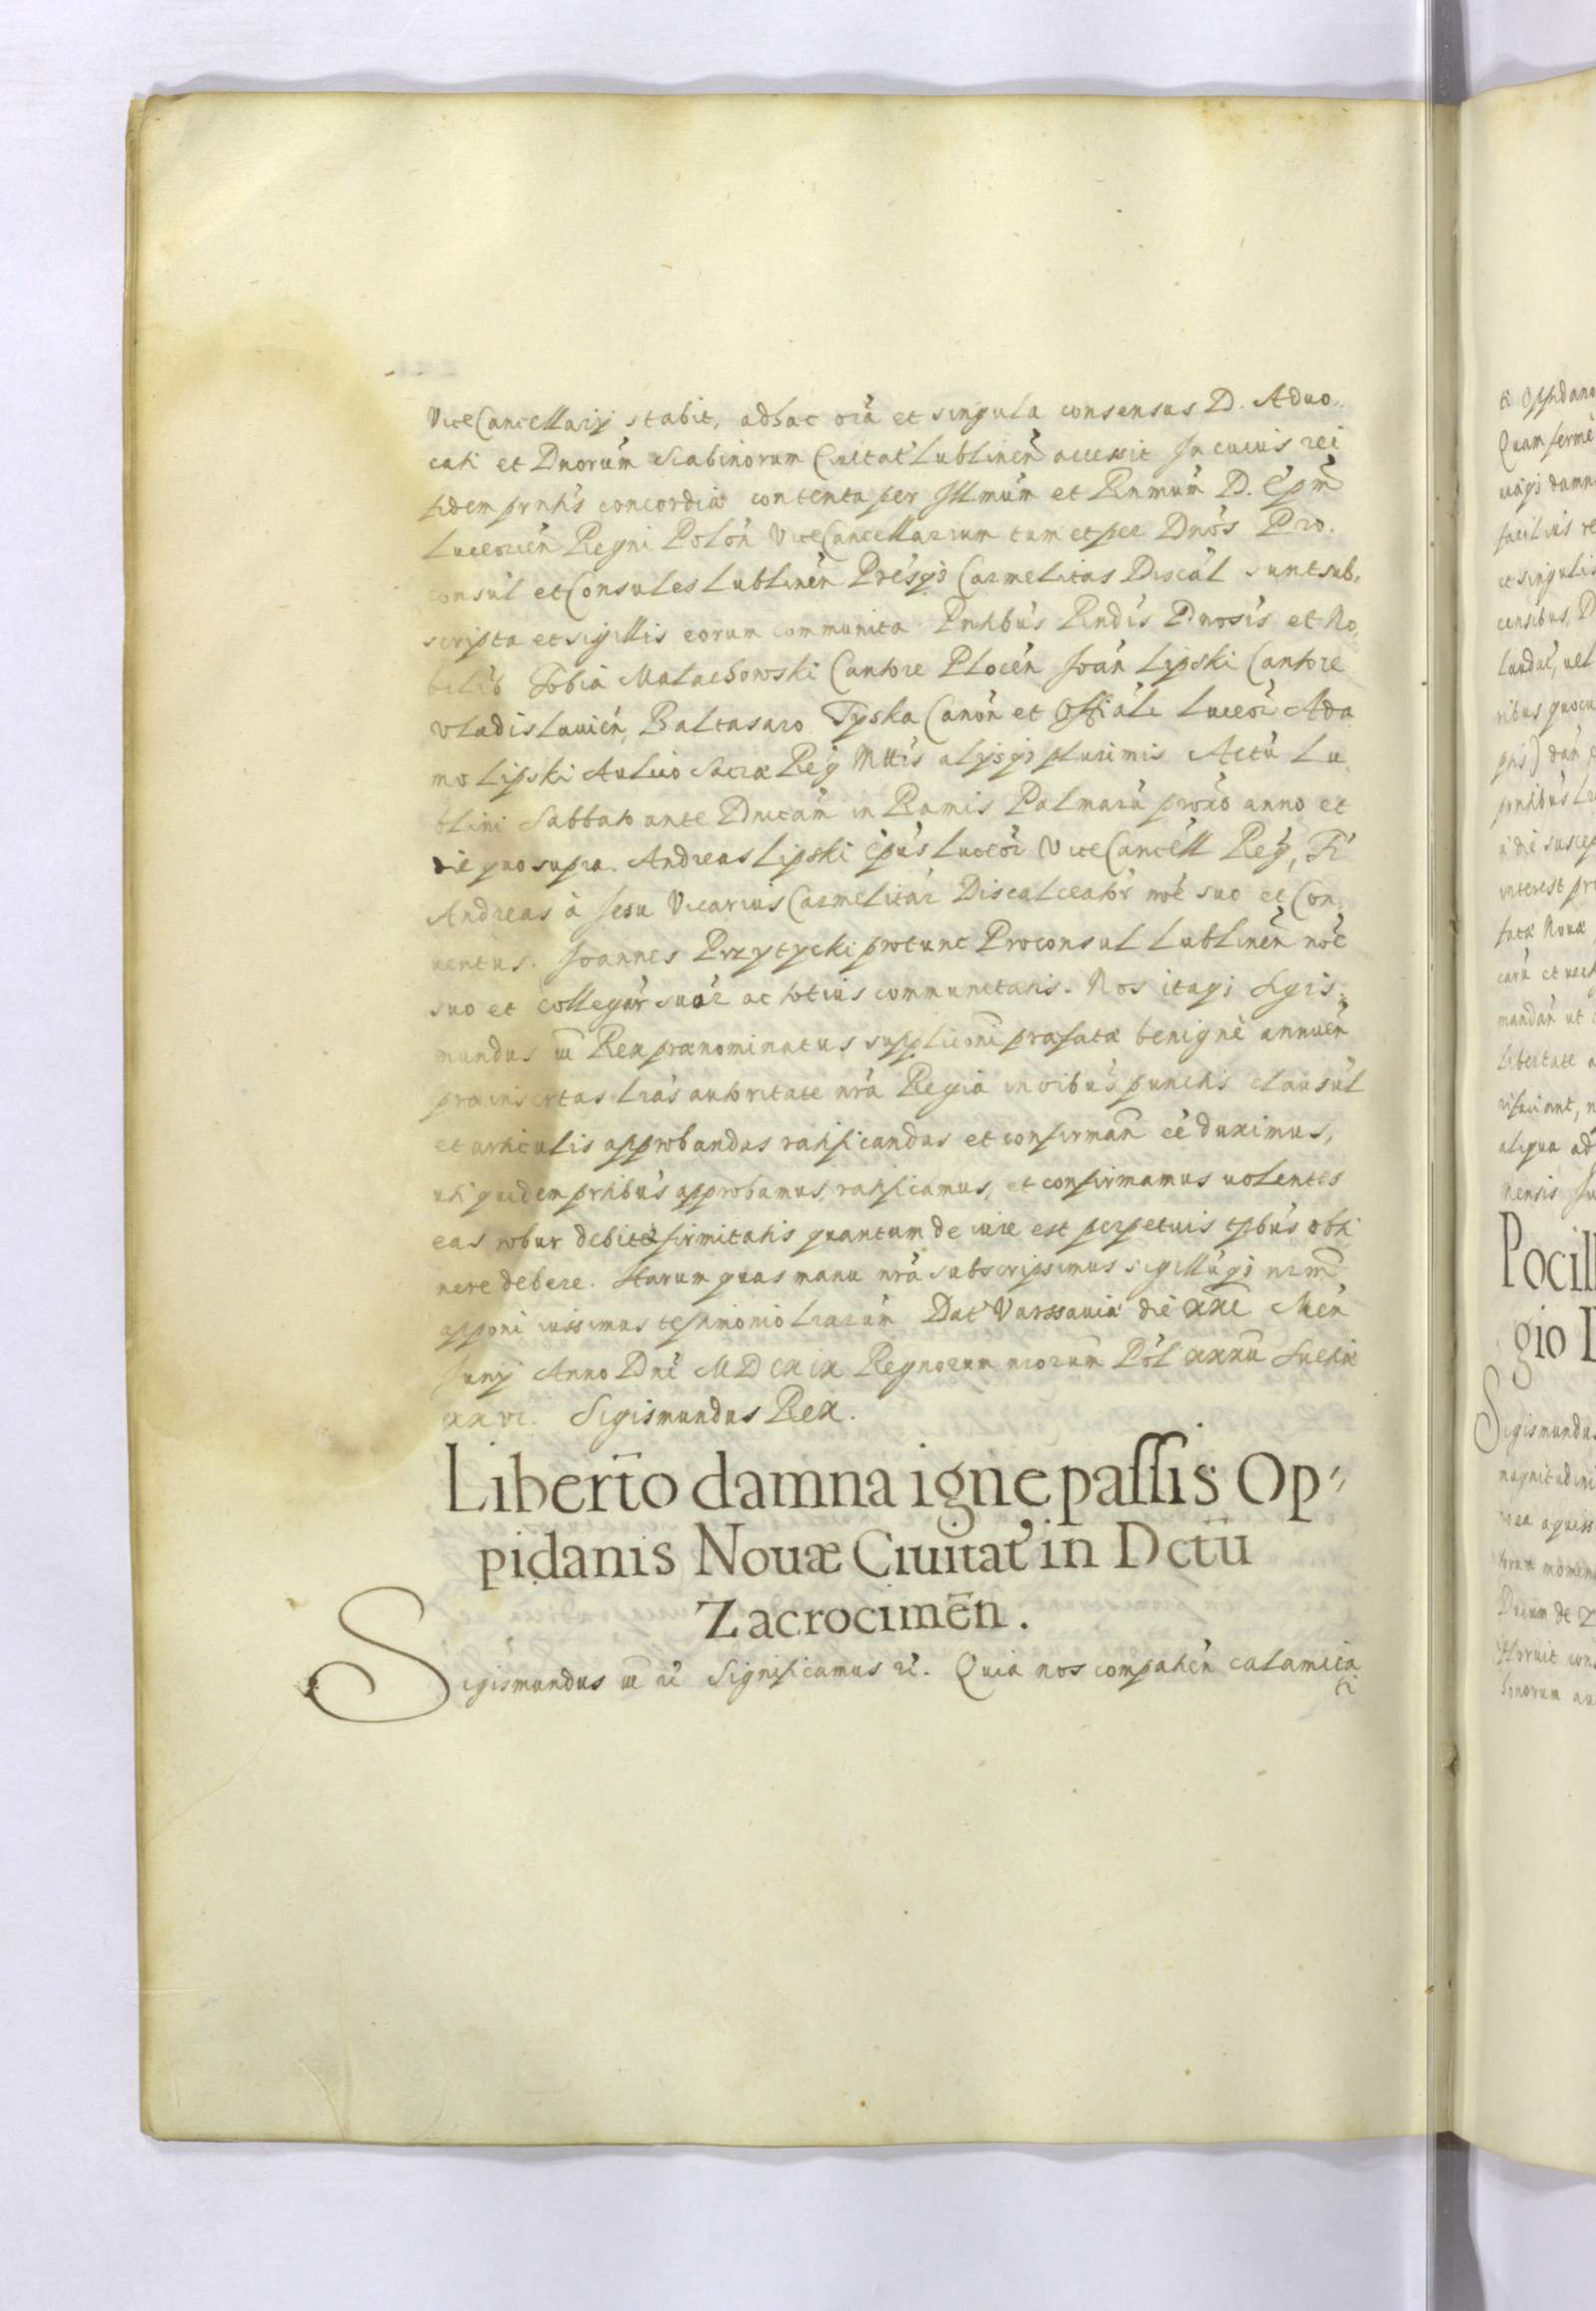 ViceCancellarij stabit, adhac oia et singula consensus D. Aduo
cati et Dnorum Scabinorum Ciuitat Lublinen accessit In cuius rei
fidem prntis concordiæ contenta per Illmum et Rnmum D. Epm
Luceorien Regni Polon ViceCancellarium tum et per Dnos Pro
consul et Consules Lublinen Presqs Carmelitas Discal sunt sub,
scripta et sigillis eorum communita Pntibus Rndis Dnosis et No
bilib Tobia Malachowski Cantore Plocen Joan Lipski Cantore
Vladislauien, Baltasaro Tyska Canon et Offiale Luceor Ada
mo Lipski Aulico Sacræ Reg Mttis alijsqs plurimis Actu Lu
blini Sabbato ante Dnicam in Ramis Palmaru proxio anno et
die quo supra. Andreas Lipski Epus Luceor ViceCancell Reg, Fr
Andreas à Jesu Vicarius Carmelitar Discalceator noe suo et Con
uentus. Joannes Przytycki protunc Proconsul Lublinen noe
suo et collegar suor ac totius communitatis. Nos itaqs Sigis
mundus iii Rex prænominatus supplicõni præfatæ benignè annuen
præinsertas lras authoritate nra Regia in oibus punctis clausul
et articulis approbandas ratificandas et confirman eè duximus,
uti quidem prntibus approbamus, ratificamus, et confirmamus uolentes
eas robur debitæ firmitatis quantum de iure est perpetuis tpbus obti
nere debere. Harum quas manu nra subscripsimus sigilluqs nrm
apponi iussimus testimonio lrarum Dat Varssauiæ die xxi Men
Junij Anno Dni MDCXIX Regnorum nrorum Pol xxxii Sueciæ
xxvi. Sigismundus Rex.
Libertio damna igne passis Op
pidanis Nouæ Ciuitat in Dctu
Zacrocimen.
Sigismundus iii ri Significamus ri. Quia nos compatien calamita
ti